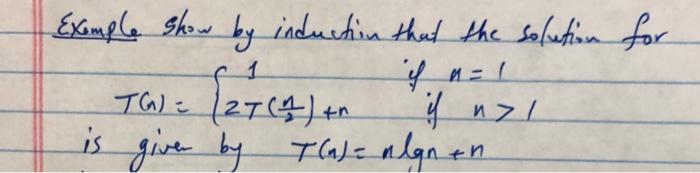 Example Show by induction that the solution for
T(n) = { 1 if n = 1
2T(n/2) + n if n > 1
is given by T(n) = n lgn + n